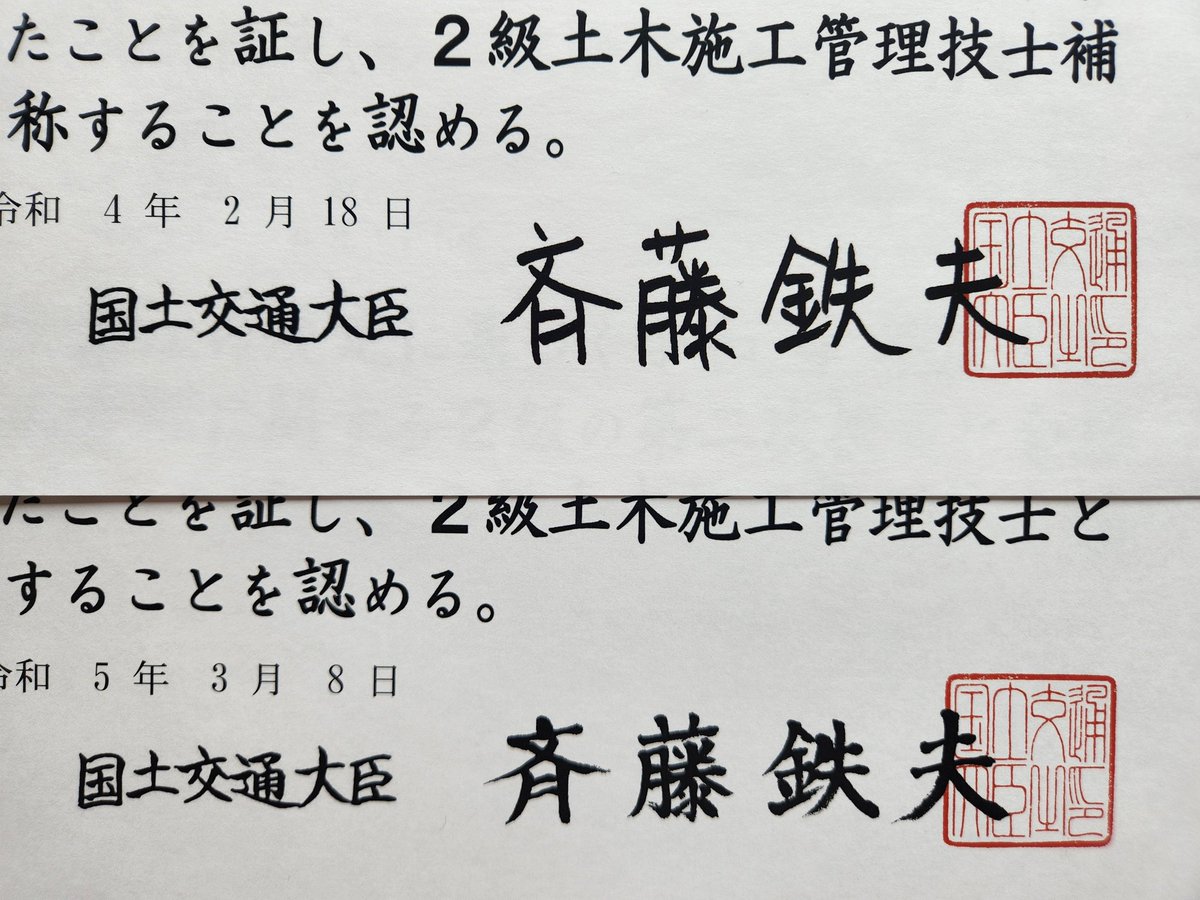 たことを証し、2級土木施工管理技士補
称することを認める。
令和 4 年 2 月 18 日
国土交通大臣 斉藤鉄夫
国土交通大臣印
たことを証し、2級土木施工管理技士と
することを認める。
令和 5 年 3 月 8 日
国土交通大臣 斉藤鉄夫
国土交通大臣印